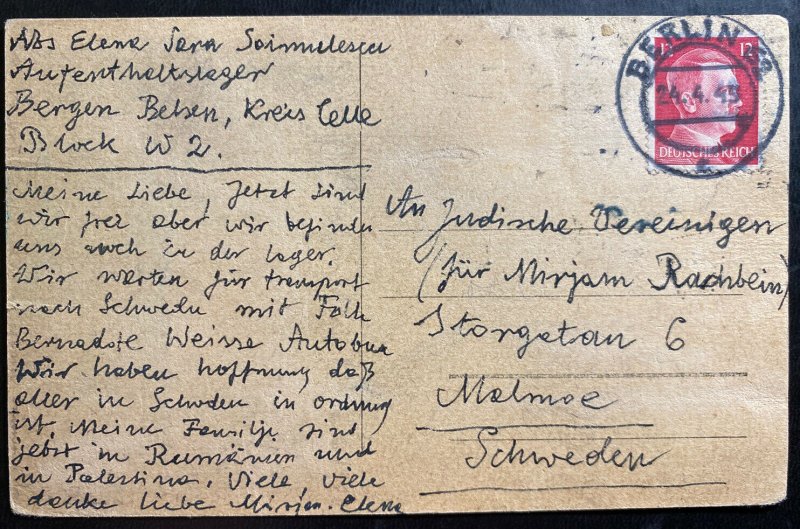 Abs Elena Sara Soimulescu
Aufenthaltslager
Bergen Belsen, Kreis Celle
Block W 2.
Meine Liebe, Jetzt sind
wir frei aber wir befinden
uns noch in der lager.
Wir warten für transport
nach Schweden mit Folke
Bernadote Weisse Autobus
Wir haben hoffnung daß
aller in Schweden in ordnung
ist. Meine Familje sind
jetzt in Rumänien und
in Palestina. Viele, viele
danke liebe Mirjam. Elena
BERLIN
24.4.45
12 12
DEUTSCHES REICH
An Judische Vereinigen
(für Mirjam Rachbein)
Storgatan 6
Malmoe
Schweden